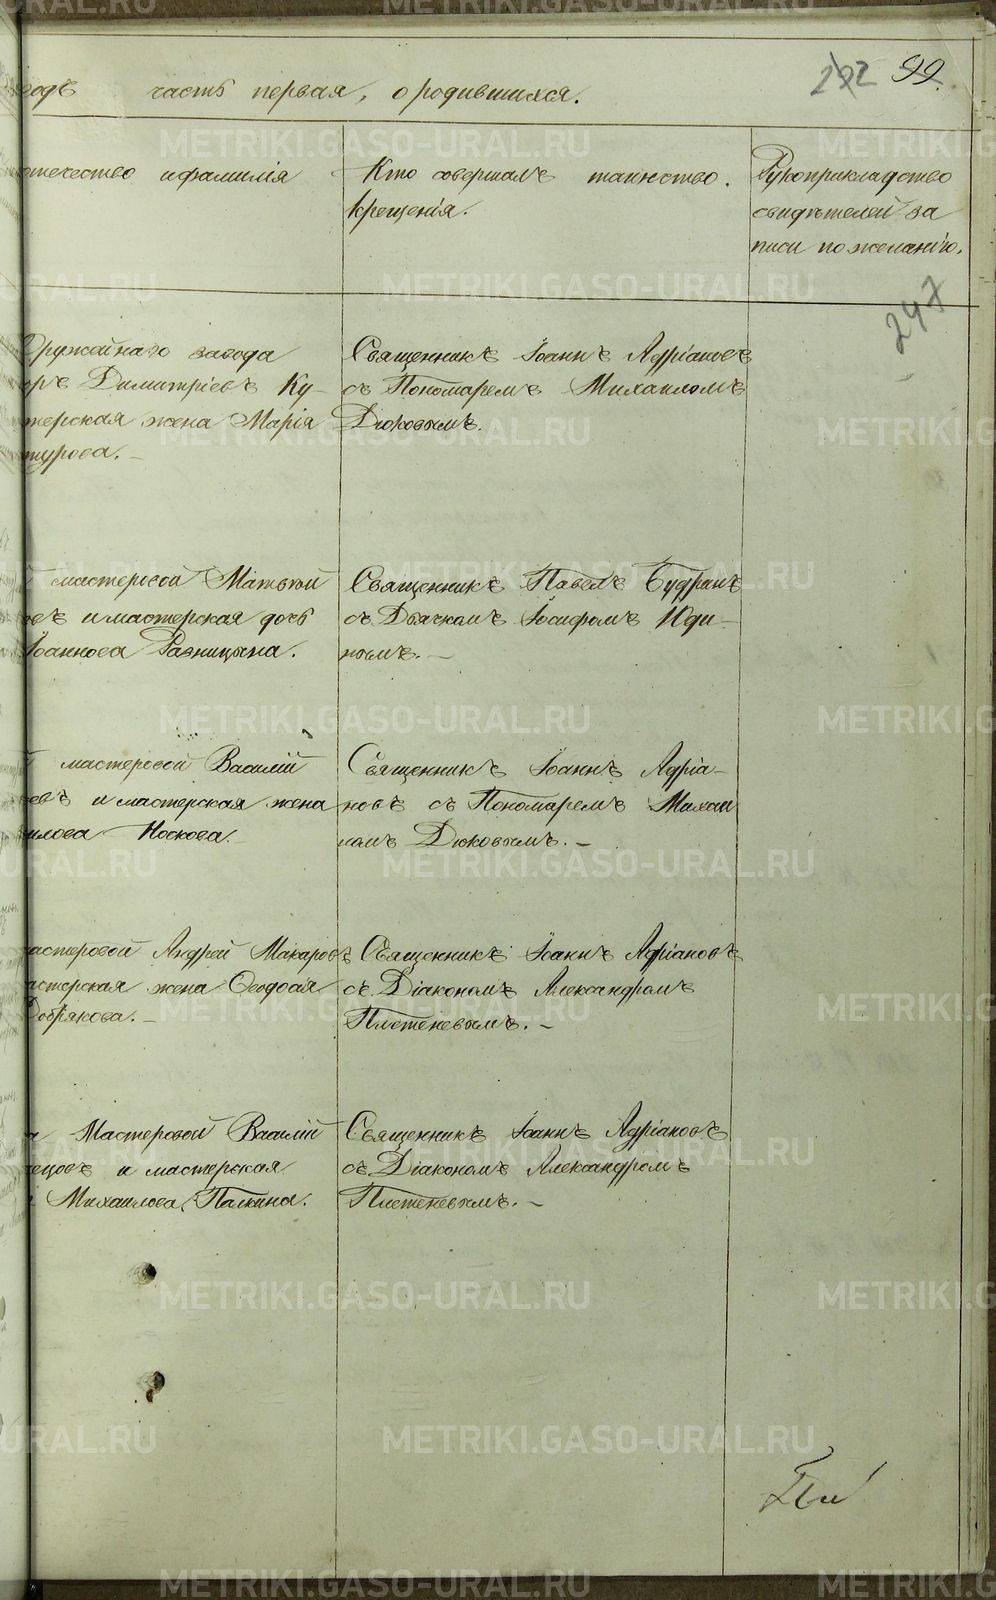 годъ часть первая, о родившихся.
99.
отчество и фамилія
Кто совершалъ таинство
крещенія.
Рукоприкладство
свидѣтелей за
писи по желанію.
247
Оружейнаго завода
Димитріевъ Ку-
терская жена Марія
турова.
Священникъ Іоаннъ Адріановъ
съ Пономаремъ Михаиломъ
Дюковымъ.
мастеровой Матвѣй
овъ и мастерская дочь
Іоаннова Разницына.
Священникъ Павелъ Будринъ
съ Дьячкомъ Іосифомъ Юди-
нымъ.
мастеровой Василій
евъ и мастерская жена
илова Носкова.
Священникъ Іоаннъ Адріа-
новъ съ Пономаремъ Михаи
ломъ Дюковымъ.
астеровой Андрей Макаровъ
астерская жена Ѳеодосія
Добрякова.
Священникъ Іоаннъ Адріановъ
съ Діакономъ Александромъ
Плетеневымъ.
а Мастеровой Василій
нецовъ и мастерская
Михаилова Палкина.
Священникъ Іоаннъ Адріановъ
съ Діакономъ Александромъ
Плетеневымъ.
METRIKI.GASO-URAL.RU